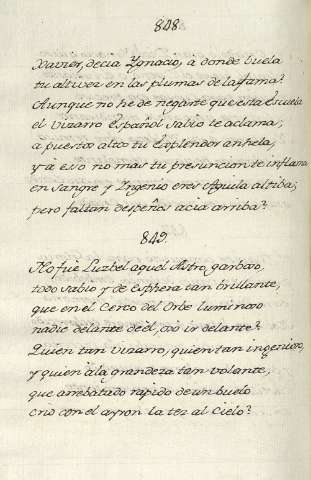 848.
Xavier, decia Ygnacio, à donde buela
tu altivez en las plumas de la fama?
Aunque no he de negarte que esta Escuela
el Vizarro Español sabio te aclama;
à puesto alto tu Esplendor anhela,
y à eso no mas tu presuncion te inflama
en Sangre y Ingenio eres Aguila altiba;
pero faltan despeños acia arriba?
849.
No fue Luzbel aquel Astro, garboso,
todo sabio y de esphera tan brillante,
que en el Cerco del Orbe luminoso
nadie delante de èl, osò ir delante?
Quien tan Vizarro, quien tan ingenioso,
y quien à la grandeza tan volante,
que arrebatado rapido de un buelo
crio con el ayron la tez al Cielo?